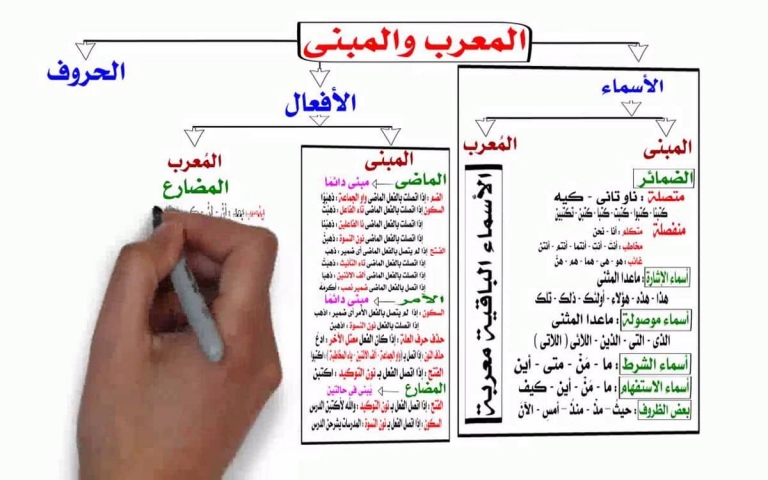 المعرب والمبنى
الأسماء
الأفعال
الحروف
المبنى
المعرب
الضمائر
متصلة : ناوتانى - كيه
كتبنا - كتبوا - كتبت - كتبا - كتبن - تكتبين
منفصلة
متكلم : أنا - نحن
مخاطب : أنت - أنت - أنتما - أنتم - أنتن
غائب : هو - هى - هما - هم - هن
أسماء الإشارة : ماعدا المثنى
هذا - هذه - هؤلاء - أولئك - ذلك - تلك
أسماء موصولة : ماعدا المثنى
الذى - التى - الذين - اللائى ( اللاتى )
أسماء الشرط : ما - مَنْ - متى - أين
أسماء الاستفهام : ما - مَنْ - أين - كيف
بعض الظروف : حيث - مذ - منذ - أمس - الآن
الأسماء الباقية معربة
المبنى
الماضى مبنى دائمًا
الضم : إذا اتصلت بالفعل الماضى واو الجماعة : ذهبوا
السكون : إذا اتصلت بالفعل الماضى تاء الفاعل : ذهبت
إذا اتصلت بالفعل الماضى نا الفاعلين : ذهبنا
إذا اتصلت بالفعل الماضى نون النسوة : ذهبن
الفتح : إذا لم يتصل بالفعل الماضى أى ضمير : ذهب
إذا اتصلت بالفعل الماضى تاء التأنيث : ذهبت
إذا اتصلت بالفعل الماضى ألف الاثنين : ذهبا
إذا اتصل بالفعل الماضى ضمير نصب : أكرمه
الأمر مبنى دائمًا
السكون : إذا لم يتصل بالفعل الأمر أى ضمير : اذهب
إذا اتصلت بالفعل نون النسوة : اذهبن
حذف حرف العلة : إذا كان الفعل معتل الآخر : ادع
حذف النون : إذا اتصل بـ (واو الجماعة - ألف الاثنين - ياء المخاطبة) : اكتبوا
الفتح : إذا اتصل الفعل بـ نون التوكيد : اكتبن
المضارع يبنى فى حالتين
الفتح : إذا اتصل الفعل بـ نون التوكيد : والله لأكتبن الدرس
السكون : إذا اتصل الفعل بـ نون النسوة : المدرسات يشرحن الدرس
المُعرب
المضارع